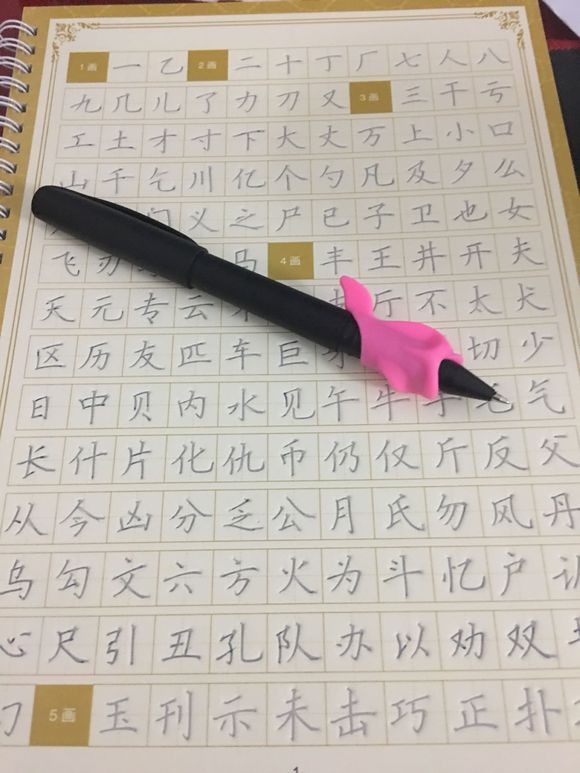 1画 一 乙 2画 二 十 丁 厂 七 人 八
九 几 儿 了 力 刀 又 3画 三 干 亏
工 土 才 寸 下 大 丈 万 上 小 口
山 千 乞 川 亿 个 勺 凡 及 夕 么
门 义 之 尸 已 子 卫 也 女
飞 马 4画 丰 王 井 开 夫
天 元 专 云 厅 不 太 犬
区 历 友 匹 车 巨 切 少
日 中 贝 内 水 见 午 牛 手 毛 气
长 什 片 化 仇 币 仍 仅 斤 反 父
从 今 凶 分 乏 公 月 氏 勿 风 丹
乌 勾 文 六 方 火 为 斗 忆 户
心 尺 引 丑 孔 队 办 以 劝 双
5画 玉 刊 示 未 击 巧 正 扑
1